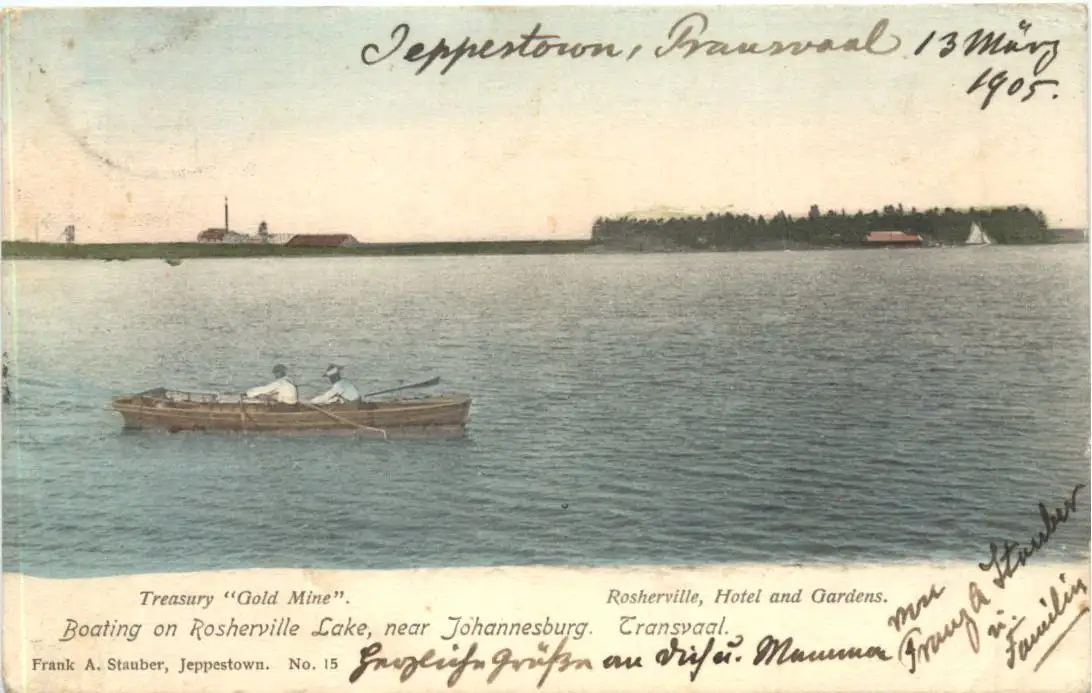 Jeppestown, Transvaal 13 März
1905.
Treasury "Gold Mine".
Rosherville, Hotel and Gardens.
Boating on Rosherville Lake, near Johannesburg. Transvaal.
Frank A. Stauber, Jeppestown. No. 15
Herzliche Grüße an Dich u. Mamma
von
Franz A Stauber
u.
Familie